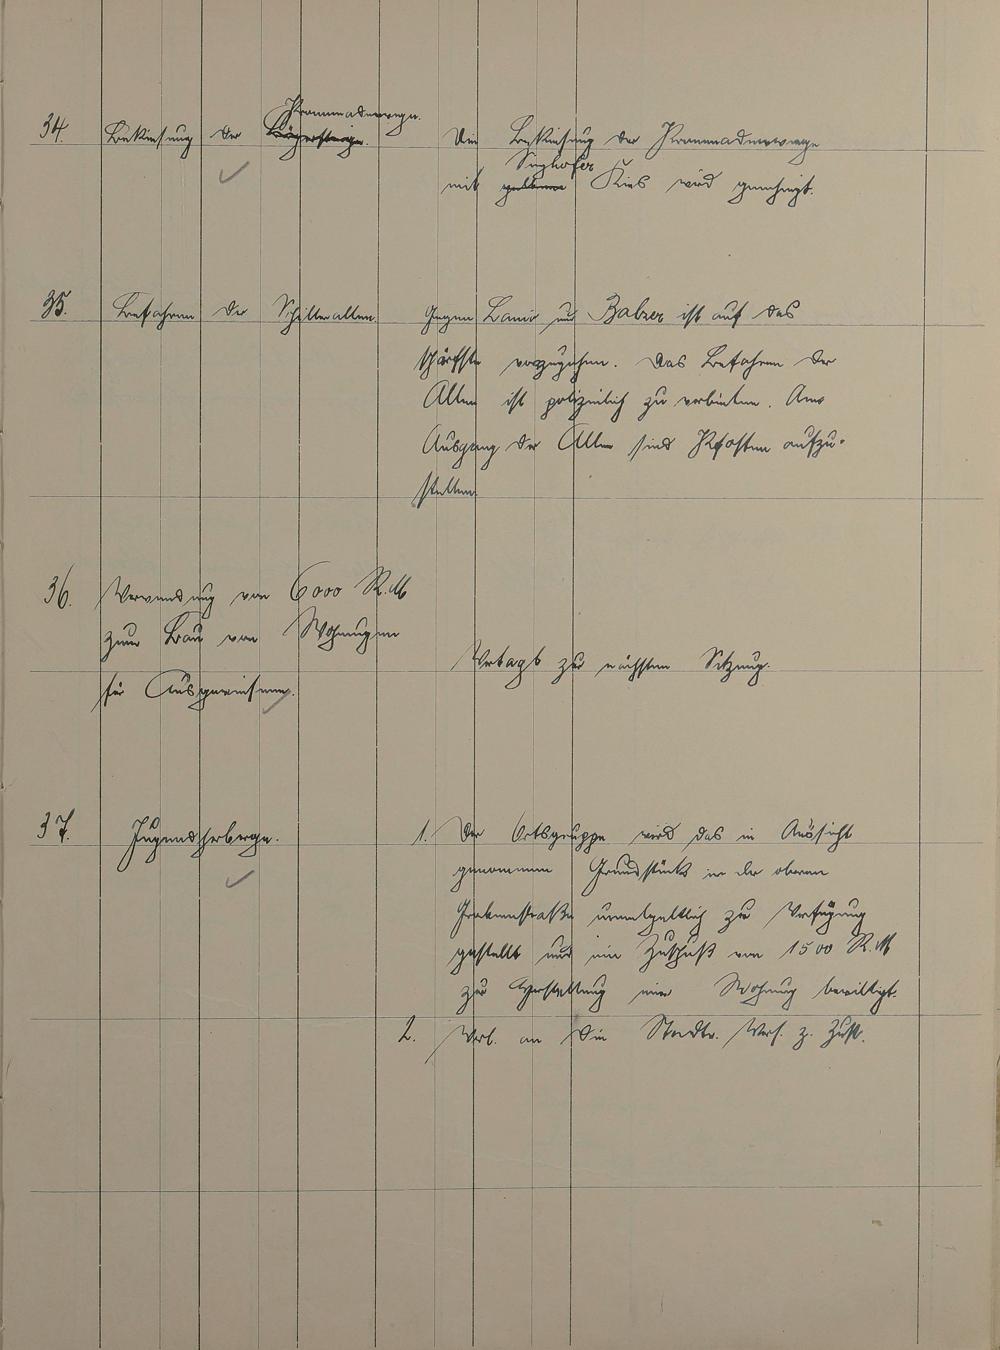 34. Bekiesung der Promenadenwege.
Bürgersteige.
Die Bekiesung der Promenadenwege
Singhofer
mit gelbem Kies wird genehmigt.
35. Befahren der Schillerallee.
Gegen Lanio und Balzer ist auf das
schärfste vorzugehen. Das Befahren der
Allee ist polizeilich zu verbieten. Am
Ausgang der Allee sind Pfosten aufzu-
stellen.
36. Verwendung von 6000 R.M
zum Bau von Wohnungen
für Ausgewiesene.
Vertagt zur nächsten Sitzung.
37. Jugendherberge.
1. Der Ortsgruppe wird das in Aussicht
genommene Grundstück in der oberen
Grabenstraße unentgeltlich zur Verfügung
gestellt und ein Zuschuß von 1500 R.M
zur Herstellung einer Wohnung bewilligt.
2. Vorl. an die Stadtv. Vers. z. Zust.